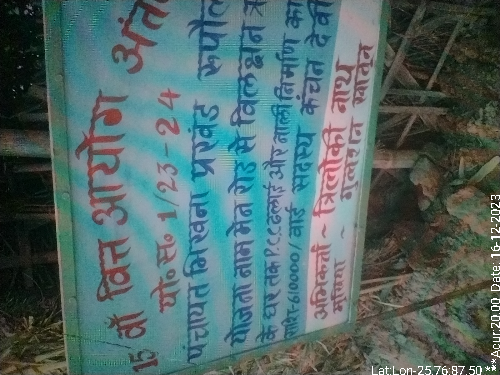 15 वाँ वित्त आयोग अंत
यो॰ स॰ 1/23-24
पंचायत भिखना प्रखंड रूपौल
योजना नाम मेन रोड से विलक्षन
के घर तक P.C.C ढलाई और नाली निर्माण का
राशि-610000/ वार्ड सदस्य कंचन देवी
अभिकर्ता ~ त्रिलोकी नाथ
मुखिया ~ गुलशन खातुन
Lat Lon-25.76,87.50
Date: 16-12-2023